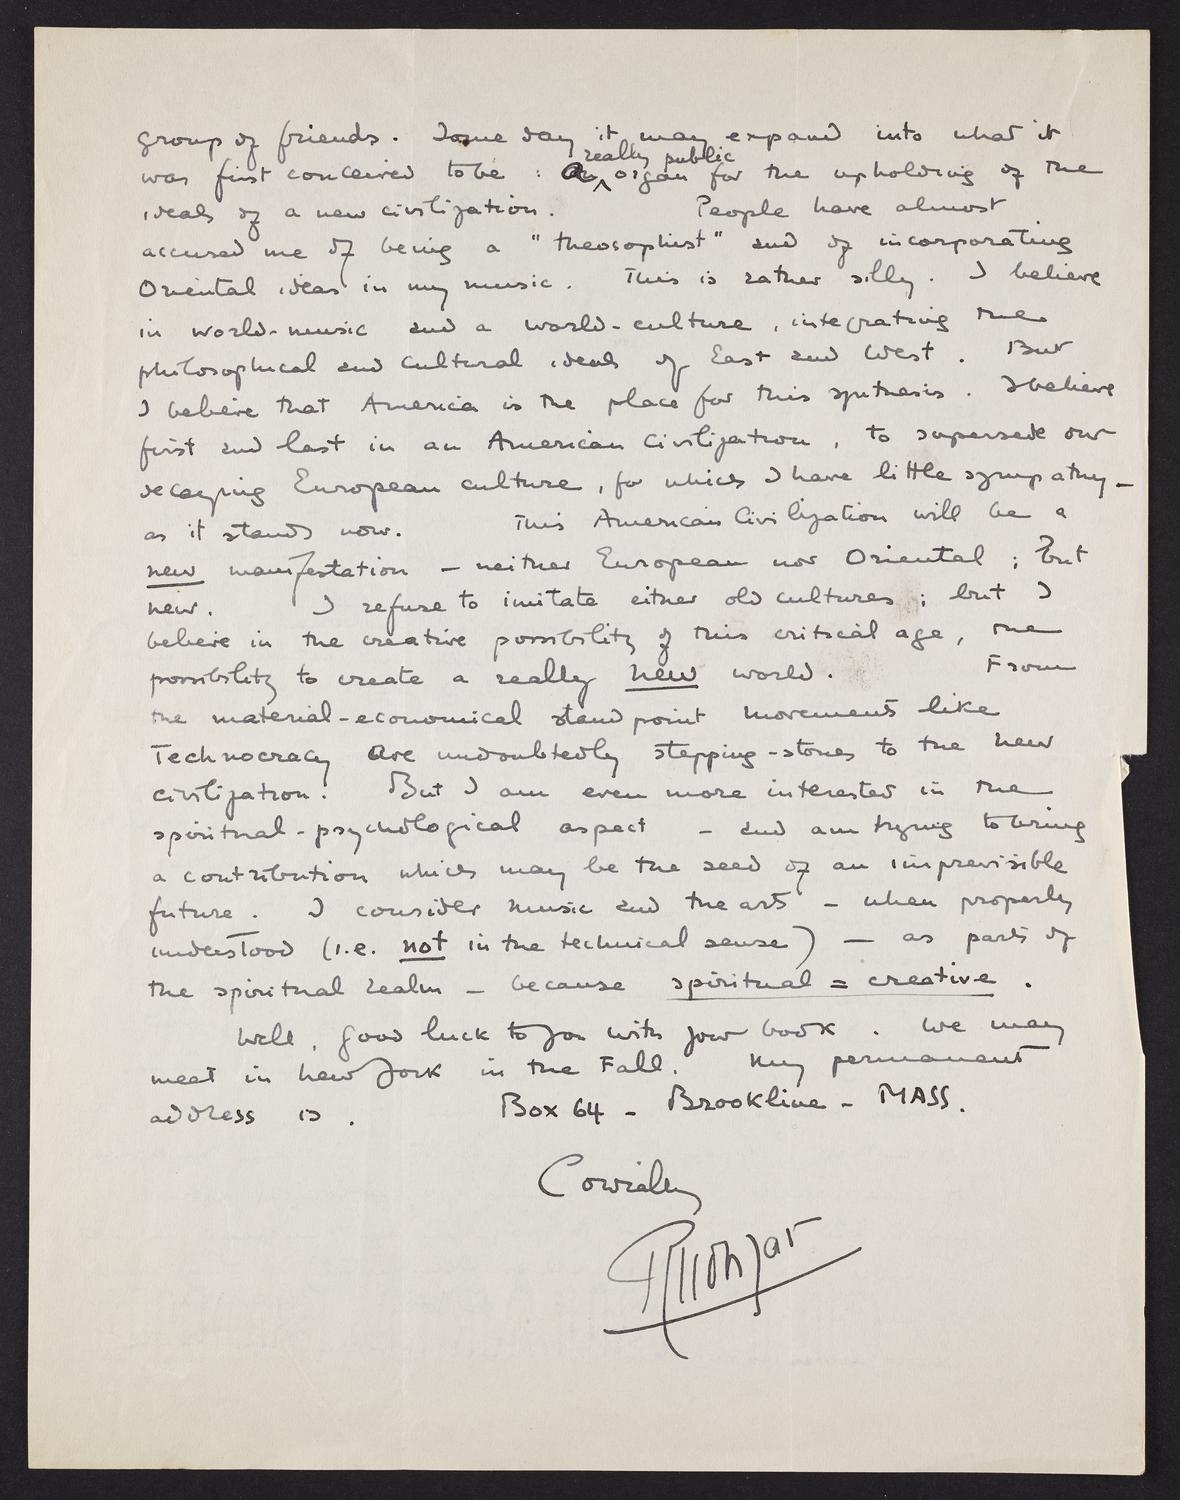 group of friends. Some day it may expand into what it
really public
was first conceived to be : a organ for the upholding of the
ideals of a new civilization. People have almost
accused me of being a "theosophist" and of incorporating
Oriental ideas in my music. This is rather silly. I believe
in world-music and a world-culture, integrating the
philosophical and cultural ideals of East and West. But
I believe that America is the place for this synthesis. I believe
first and last in an American Civilization, to supersede our
decaying European culture, for which I have little sympathy -
as it stands now. This American Civilization will be a
new manifestation - neither European nor Oriental ; but
new. I refuse to imitate either old cultures ; but I
believe in the creative possibility of this critical age, the
possibility to create a really new world. From
the material-economical standpoint movements like
Technocracy are undoubtedly stepping-stones to the new
civilization. But I am even more interested in the
spiritual-psychological aspect - and am trying to bring
a contribution which may be the seed of an imprevisible
future. I consider music and the arts - when properly
understood (i.e. not in the technical sense) - as parts of
the spiritual realm - because spiritual = creative.
Well, good luck to you with your book. We may
meet in New York in the Fall. My permanent
address is. Box 64 - Brookline - MASS.
Cordially